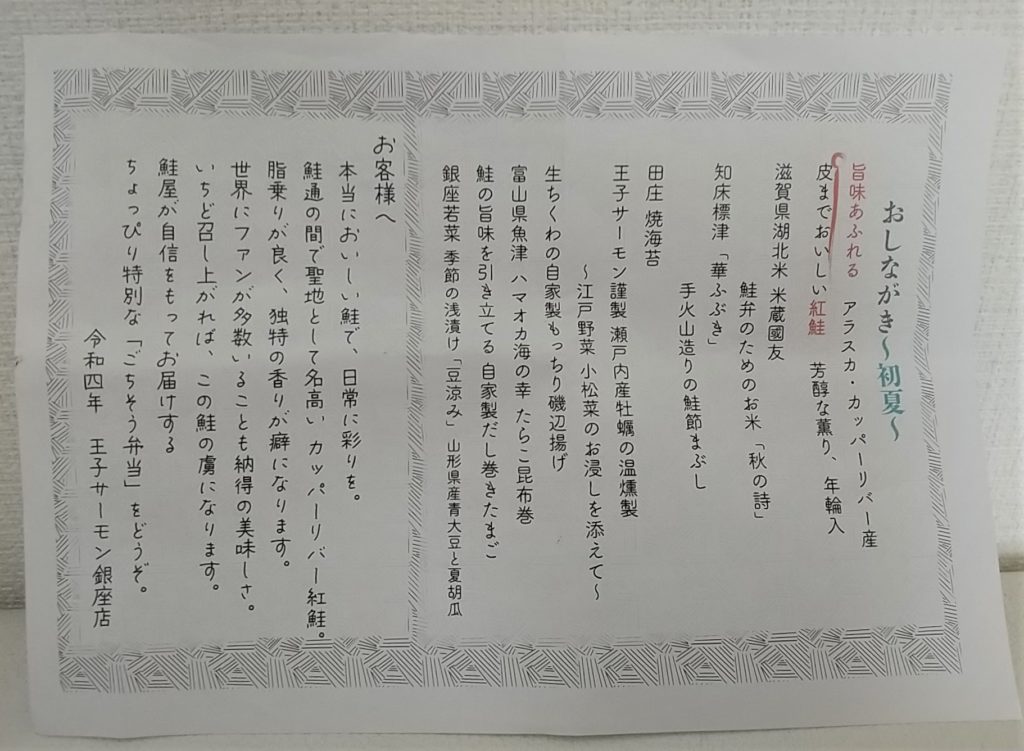 おしながき〜初夏〜
旨味あふれる アラスカ・カッパーリバー産
皮までおいしい紅鮭 芳醇な薫り、年輪入
滋賀県湖北米 米蔵國友
鮭弁のためのお米「秋の詩」
知床標津「華ふぶき」
手火山造りの鮭節まぶし
田庄 焼海苔
王子サーモン謹製 瀬戸内産牡蠣の温燻製
〜江戸野菜 小松菜のお浸しを添えて〜
生ちくわの自家製もっちり磯辺揚げ
富山県魚津 ハマオカ海の幸 たらこ昆布巻
鮭の旨味を引き立てる 自家製だし巻きたまご
銀座若菜 季節の浅漬け「豆涼み」 山形県産青大豆と夏胡瓜
お客様へ
本当においしい鮭で、日常に彩りを。
鮭通の間で聖地として名高い カッパーリバー紅鮭。
脂乗りが良く、独特の香りが癖になります。
世界にファンが多数いることも納得の美味しさ。
いちど召し上がれば、この鮭の虜になります。
鮭屋が自信をもってお届けする
ちょっぴり特別な「ごちそう弁当」をどうぞ。
令和四年 王子サーモン銀座店